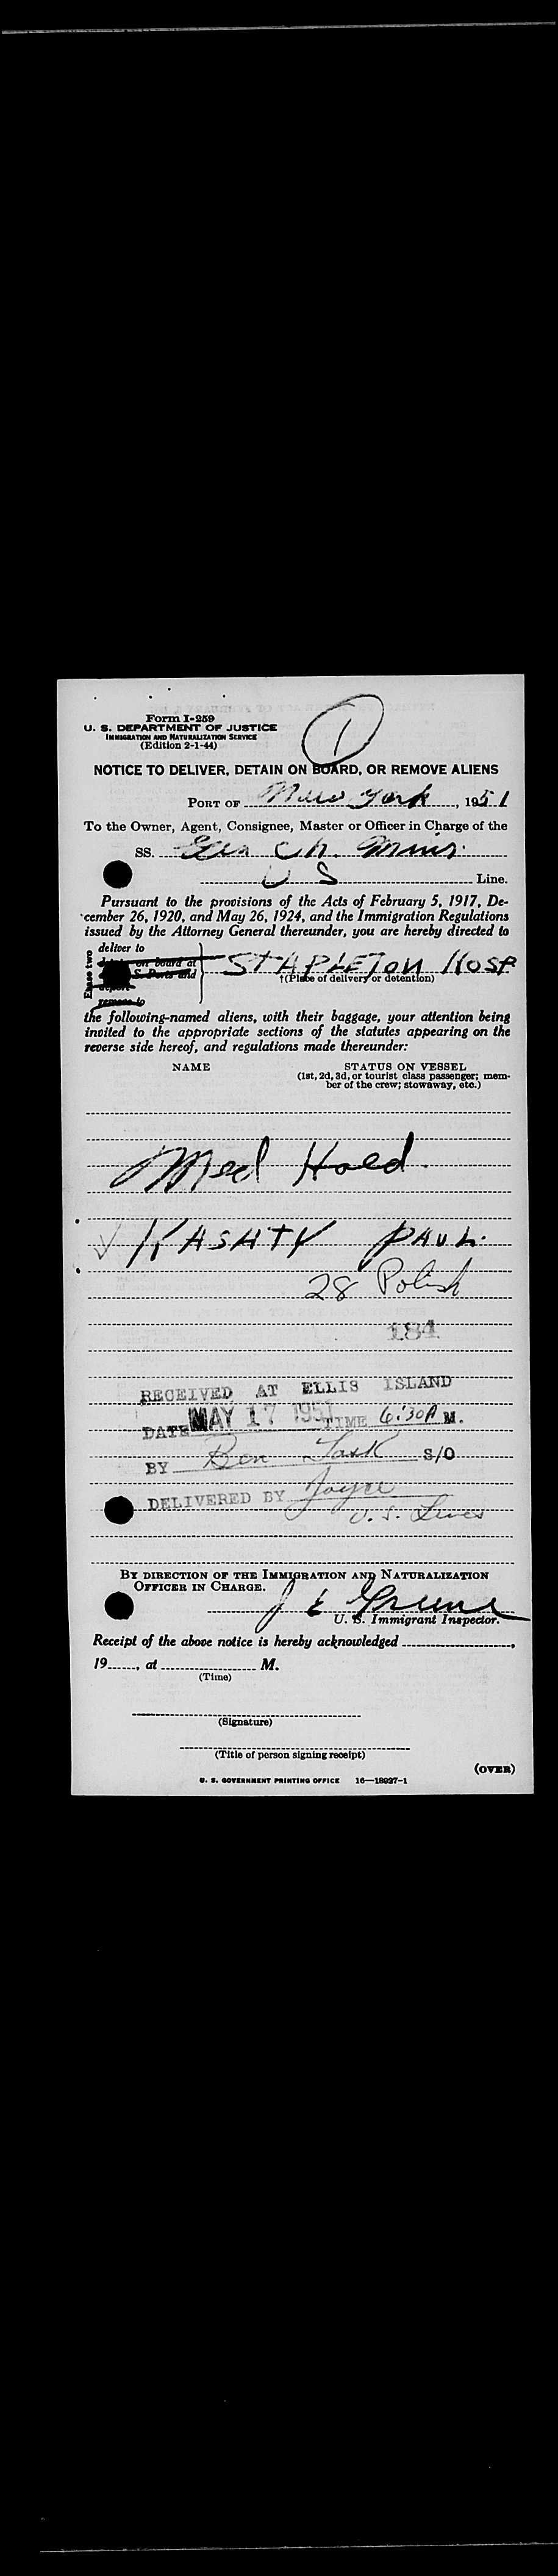 Form I-259
U. S. DEPARTMENT OF JUSTICE
IMMIGRATION AND NATURALIZATION SERVICE
(Edition 2-1-44)
1
NOTICE TO DELIVER, DETAIN ON BOARD, OR REMOVE ALIENS
PORT OF New York, 1951
To the Owner, Agent, Consignee, Master or Officer in Charge of the
SS.
U S Line.
Pursuant to the provisions of the Acts of February 5, 1917, De-
cember 26, 1920, and May 26, 1924, and the Immigration Regulations
issued by the Attorney General thereunder, you are hereby directed to
Erase two
deliver to
on board at
S. Ports and
remove to
STAPLETON HOSP
†(Place of delivery or detention)
the following-named aliens, with their baggage, your attention being
invited to the appropriate sections of the statutes appearing on the
reverse side hereof, and regulations made thereunder:
NAME STATUS ON VESSEL
(1st, 2d, 3d, or tourist class passenger; mem-
ber of the crew; stowaway, etc.)
Med Hold.
✓ KASHTY PAUL.
28 Polish
184
RECEIVED AT ELLIS ISLAND
DATE MAY 17 1951 TIME 6:30 A M.
BY Ben Task S/O
DELIVERED BY Joyce
U. S. Lines
BY DIRECTION OF THE IMMIGRATION AND NATURALIZATION
OFFICER IN CHARGE.
J E Greene
U. S. Immigrant Inspector.
Receipt of the above notice is hereby acknowledged ,
19 , at M.
(Time)
(Signature)
(Title of person signing receipt)
(OVER)
U. S. GOVERNMENT PRINTING OFFICE 16—18927-1